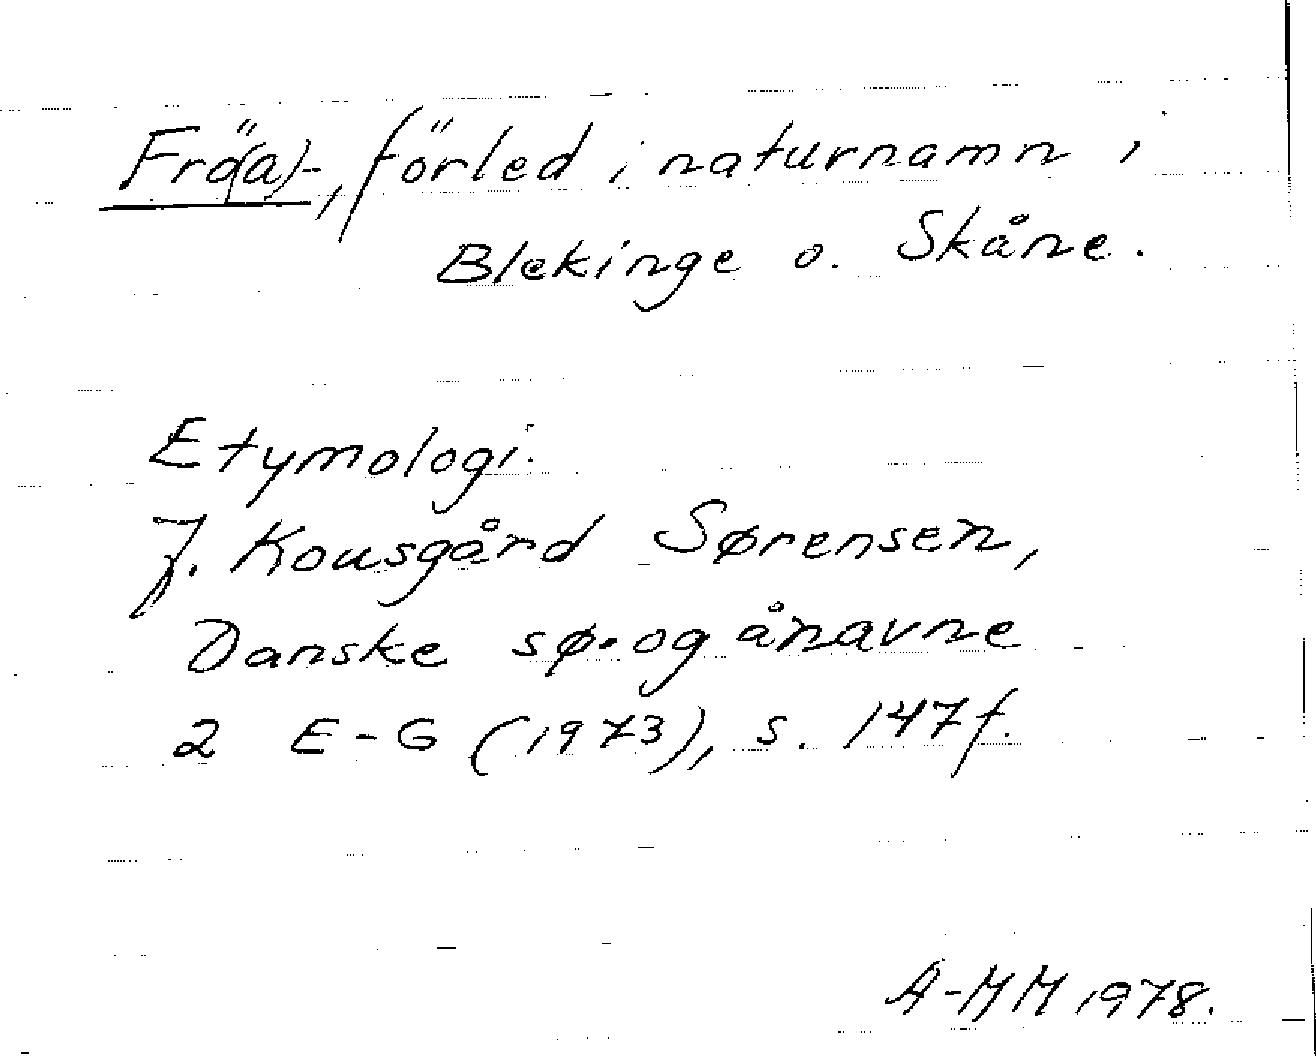 Frö(a)-, förled i naturnamn i
Blekinge o. Skåne.
Etymologi:
J. Kousgård Sørensen,
Danske sø- og ånavne
2 E-G (1973), s. 147f.
A-MM 1978.